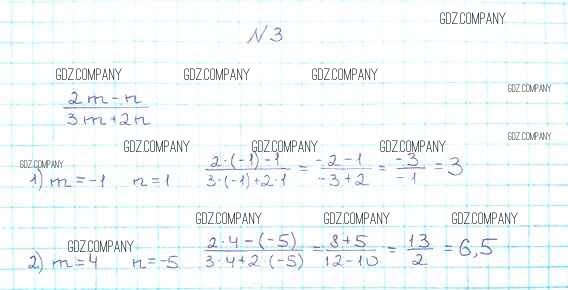 GDZ.COMPANY
N 3
GDZ.COMPANY GDZ.COMPANY GDZ.COMPANY
GDZ.COMPANY
2m-n / 3m+2n
GDZ.COMPANY
GDZ.COMPANY GDZ.COMPANY GDZ.COMPANY
GDZ.COMPANY
1) m=-1 n=1 2·(-1)-1 / 3·(-1)+2·1 = -2-1 / -3+2 = -3 / -1 = 3
GDZ.COMPANY GDZ.COMPANY GDZ.COMPANY
GDZ.COMPANY
2) m=4 n=-5 2·4-(-5) / 3·4+2·(-5) = 8+5 / 12-10 = 13 / 2 = 6,5